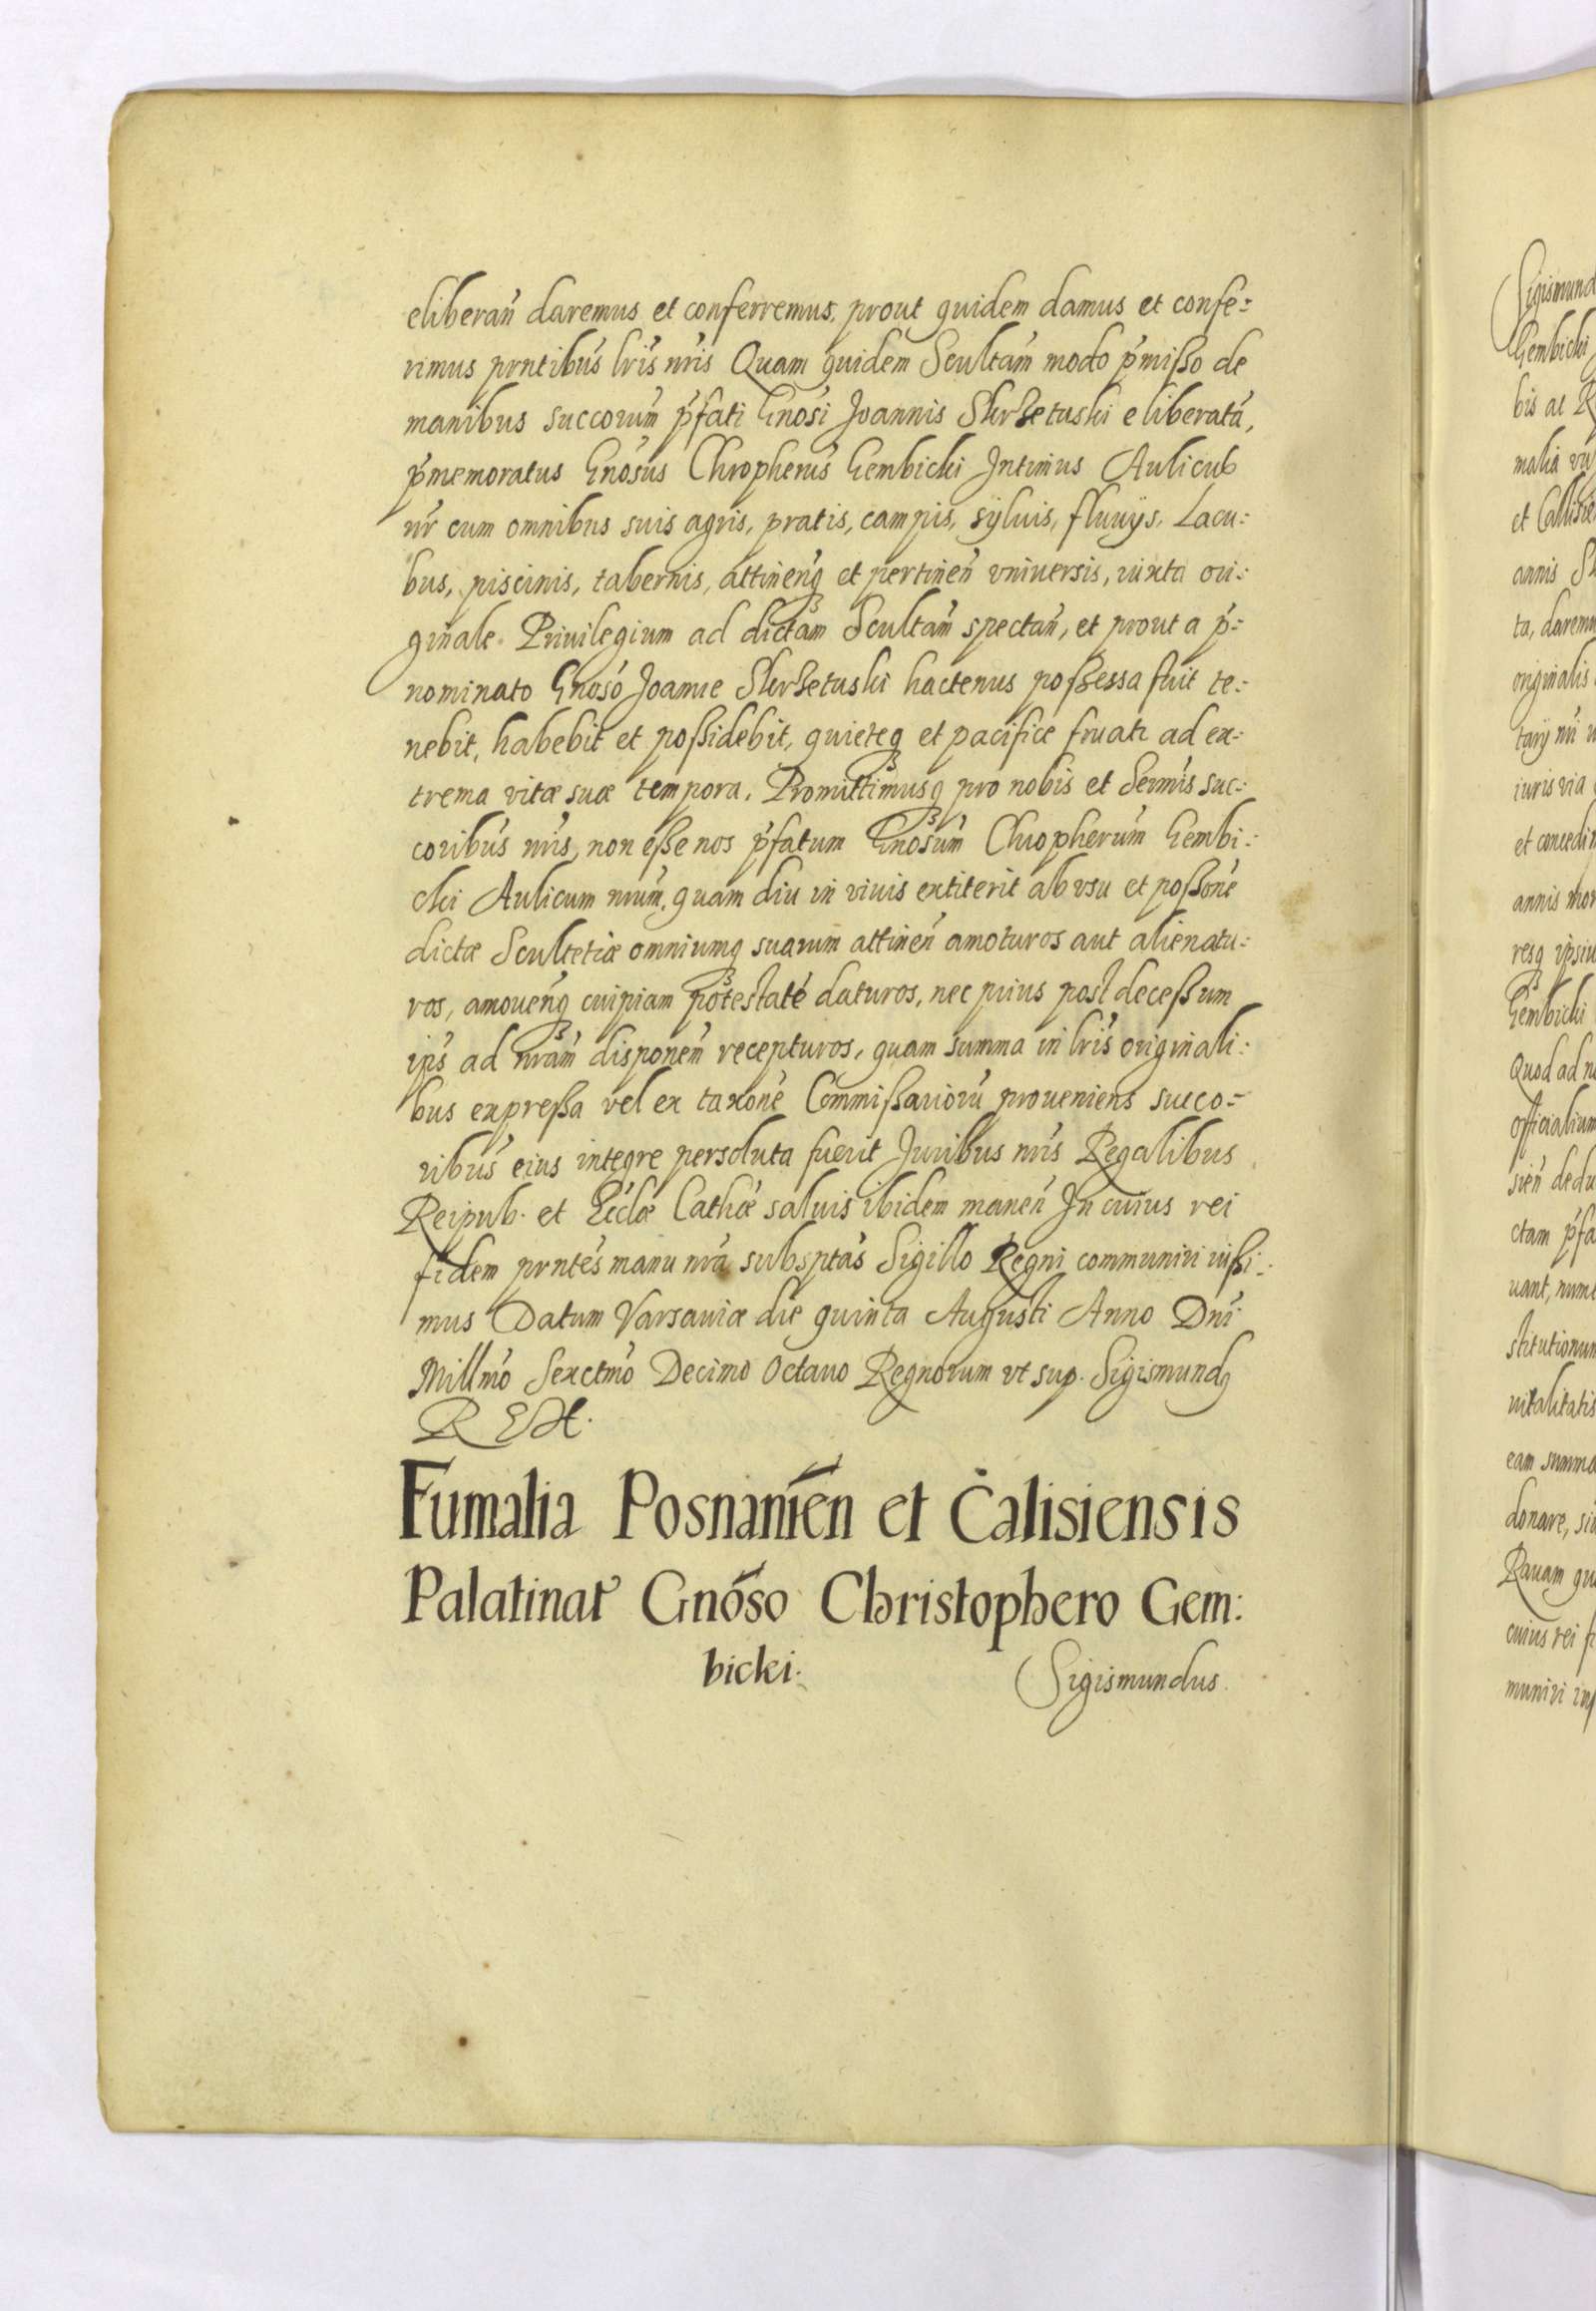 eliberan̄ daremus et conferremus, prout quidem damus et confe-
rimus prntibus lris nris Quam quidem Scultam modo p̄misso de
manibus succorum p̄fati Gnosi Joannis Skrzetuski eliberatā,
p̄memoratus Gnosus Chropherus Gembicki Intimus Aulicus
nr cum omnibus suis agris, pratis, campis, sÿluis, fluuÿs, Lacu:
bus, piscinis, tabernis, attinenq₃ et pertinen̄ vniuersis, iuxta ori:
ginale Priuilegium ad dictam Scultam spectan̄, et prout a p̄:
nominato Gnoso Joanne Skrzetuski hactenus possessa fuit te:
nebit, habebit et possidebit, quieteq₃ et pacifice fruatr ad ex:
trema vitæ suæ tempora. Promittimusq₃ pro nobis et Sermis suc:
coribus nris, non esse nos p̄fatum Gnosum Chropherum Gembi:
cki Aulicum nrum, quam diu in viuis extiterit ab vsu et possone
dictæ Scultetiæ omniumq₃ suarum attinen̄ amoturos aut alienatu:
ros, amouenq₃ cuipiam potestatē daturos, nec prius post decessum
ipīs ad nram disponem recepturos, quam summa in lris originali:
bus expressa vel ex taxone Commissariorū proueniens succo-
ribus eius integre persoluta fuerit Juribus nris Regalibus
Reipub. et Ecclæ Cathæ saluis ibidem manen̄ In cuius rei
fidem prntes manu nra subsptas Sigillo Regni communiri iussi:
mus Datum Varsauiæ die quinta Augusti Anno Dni
Millmo Sexctmo Decimo Octauo Regnorum vt sup. Sigismundꝰ
REX.
Fumalia Posnanien̄ et Calisiensis
Palatinat Gnoso Christophero Gem:
bicki.
Sigismundus
Sigismund
Gembicki
bis at
et Callisie
annis
ta, darem
originalis
iuris via
annis
resq₃ ipsiu
Gembicki
Quod ad n
officialium
ctam p̄fa
uant,
stitutionum
uitalitatis
eam summa
donare,
Rauam
cuius rei
muniri